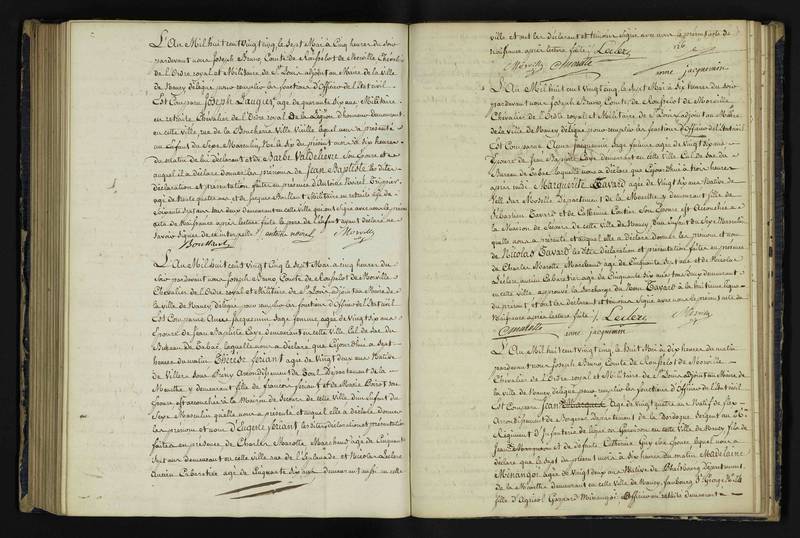 L'An Mil huit cent vingt cinq, le Sept Mai à Cinq heures du Soir
pardevant nous Joseph Bruno Comte de Chevalier
de l'Ordre royal et Militaire de St Louis adjoint au Maire de la Ville
de Nancy délégué pour remplir les fonctions d'Officier de l'État civil.
Est Comparu Joseph Laugier, agé de quarante Six ans Militaire
en retraite, Chevalier de l'Ordre royal de la Légion d'honneur demeurant
en cette ville rue de la Boucherie Ville Vieille lequel nous a présenté
un Enfant du Sexe Masculin, Né le Six du présent mois à dix heures
du matin de lui déclarant et de Barbe Valdelièvre Son Épouse et
auquel il a déclaré donner les prénoms de Jean Baptiste les dites
déclaration et présentation faites en présence d'Antoine Noirel,
de trente quatre ans et de Jacques Militaire en retraite agé de
Soixante Sept ans tous deux demeurant en cette Ville qui ont Signé avec nous le présent
acte de Naissance après lecture faite le père de l'Enfant ayant déclaré ne
Savoir Signer de ce interpellé
L'An Mil huit cent Vingt Cinq le Sept Mai à cinq heures du
Soir pardevant nous Joseph Bruno Comte de
Chevalier de l'Ordre royal et Militaire de St Louis adjoint au Maire de
la Ville de Nancy délégué pour remplir les fonctions d'Officier de l'État civil
Est Comparue Anne Jacquemin Sage femme, agée de Vingt Six ans
Épouse de Jean Baptiste Caye demeurant en cette Ville Cul de Sac du
Bureau de Tabac, laquelle nous a déclaré que Cejourd'hui à Sept
heures du matin Thérèse foriant agée de Vingt deux ans Native
de Villers Sous Preny Arrondissement de Toul Département de la
Meurthe y demeurant fille de françois foriant et de Marie Son
Épouse est accouchée à la Maison de Secours de cette Ville d'un Enfant du
Sexe Masculin qu'elle nous a présenté et auquel elle a déclaré donner
les prénom et nom d'Auguste foriant les dites déclaration et présentation
faites en présence de Charles Marotte Marchand agé de Cinquante
Sept ans demeurant en cette Ville rue de l'Esplanade et Nicolas Leclerc
Ancien Cabaretier agé de Cinquante Six ans demeurant aussi en cette
ville et ont les déclarant et témoins Signé avec nous le présent acte de
Naissance après lecture faite /. Leclerc
126
Marotte
anne jacquemin
L'An Mil huit cent Vingt cinq, le Sept Mai à Six heures du Soir
pardevant nous Joseph Bruno Comte de
Chevalier de l'Ordre royal et Militaire de St Louis adjoint au Maire
de la Ville de Nancy délégué pour remplir les fonctions d'Officier de l'État civil
Est Comparue Anne Jacquemin Sage femme agée de Vingt Six ans
Épouse de Jean Baptiste Caye demeurant en cette Ville Cul de Sac du
Bureau de Tabac, laquelle nous a déclaré que Cejourd'hui à trois heures
après midi Marguerite Tavard agée de Vingt Six ans Native de
Département de la Moselle y demeurant fille de
Sébastien Tavard et de Catherine Son Épouse est Accouchée à
la Maison de Secours de cette Ville de Nancy d'un Enfant du Sexe Masculin
qu'elle nous a présenté et auquel elle a déclaré donner les prénom et nom
de Nicolas Tavard les dites Déclaration et présentation faites en présence
de Charles Marotte Marchand agé de Cinquante Sept ans et de Nicolas
Leclerc ancien Cabaretier agé de Cinquante Six ans tous deux demeurant
en cette Ville, approuvé la Surcharge du Nom Tavard à la huitième ligne
du présent, et ont les déclarant et témoins Signé avec nous le présent acte de
Naissance après lecture faite /. Leclerc
Marotte
anne jacquemin
L'An Mil huit cent vingt cinq, le huit Mai à dix heures du matin
pardevant nous Joseph Bruno Comte de
Chevalier de l'Ordre royal et Militaire de St Louis adjoint au Maire de
la Ville de Nancy délégué pour remplir les fonctions d'Officier de l'État civil
Est Comparu Jean agé de Vingt quatre ans Natif de
Arrondissement de Département de la Dordogne, Sergent au
Régiment d'Infanterie de ligne en Garnison en cette Ville de Nancy fils de
Jean et de défunte Catherine Son Épouse, lequel nous a
déclaré que le Sept du présent mois à dix heures du matin Madelaine
Menangoi agée de Vingt deux ans Native de Phalsbourg Département
de la Meurthe demeurant en cette Ville de Nancy, faubourg St George
fille d'Agricol Gaspard Menangoi Officier en retraite demeurant